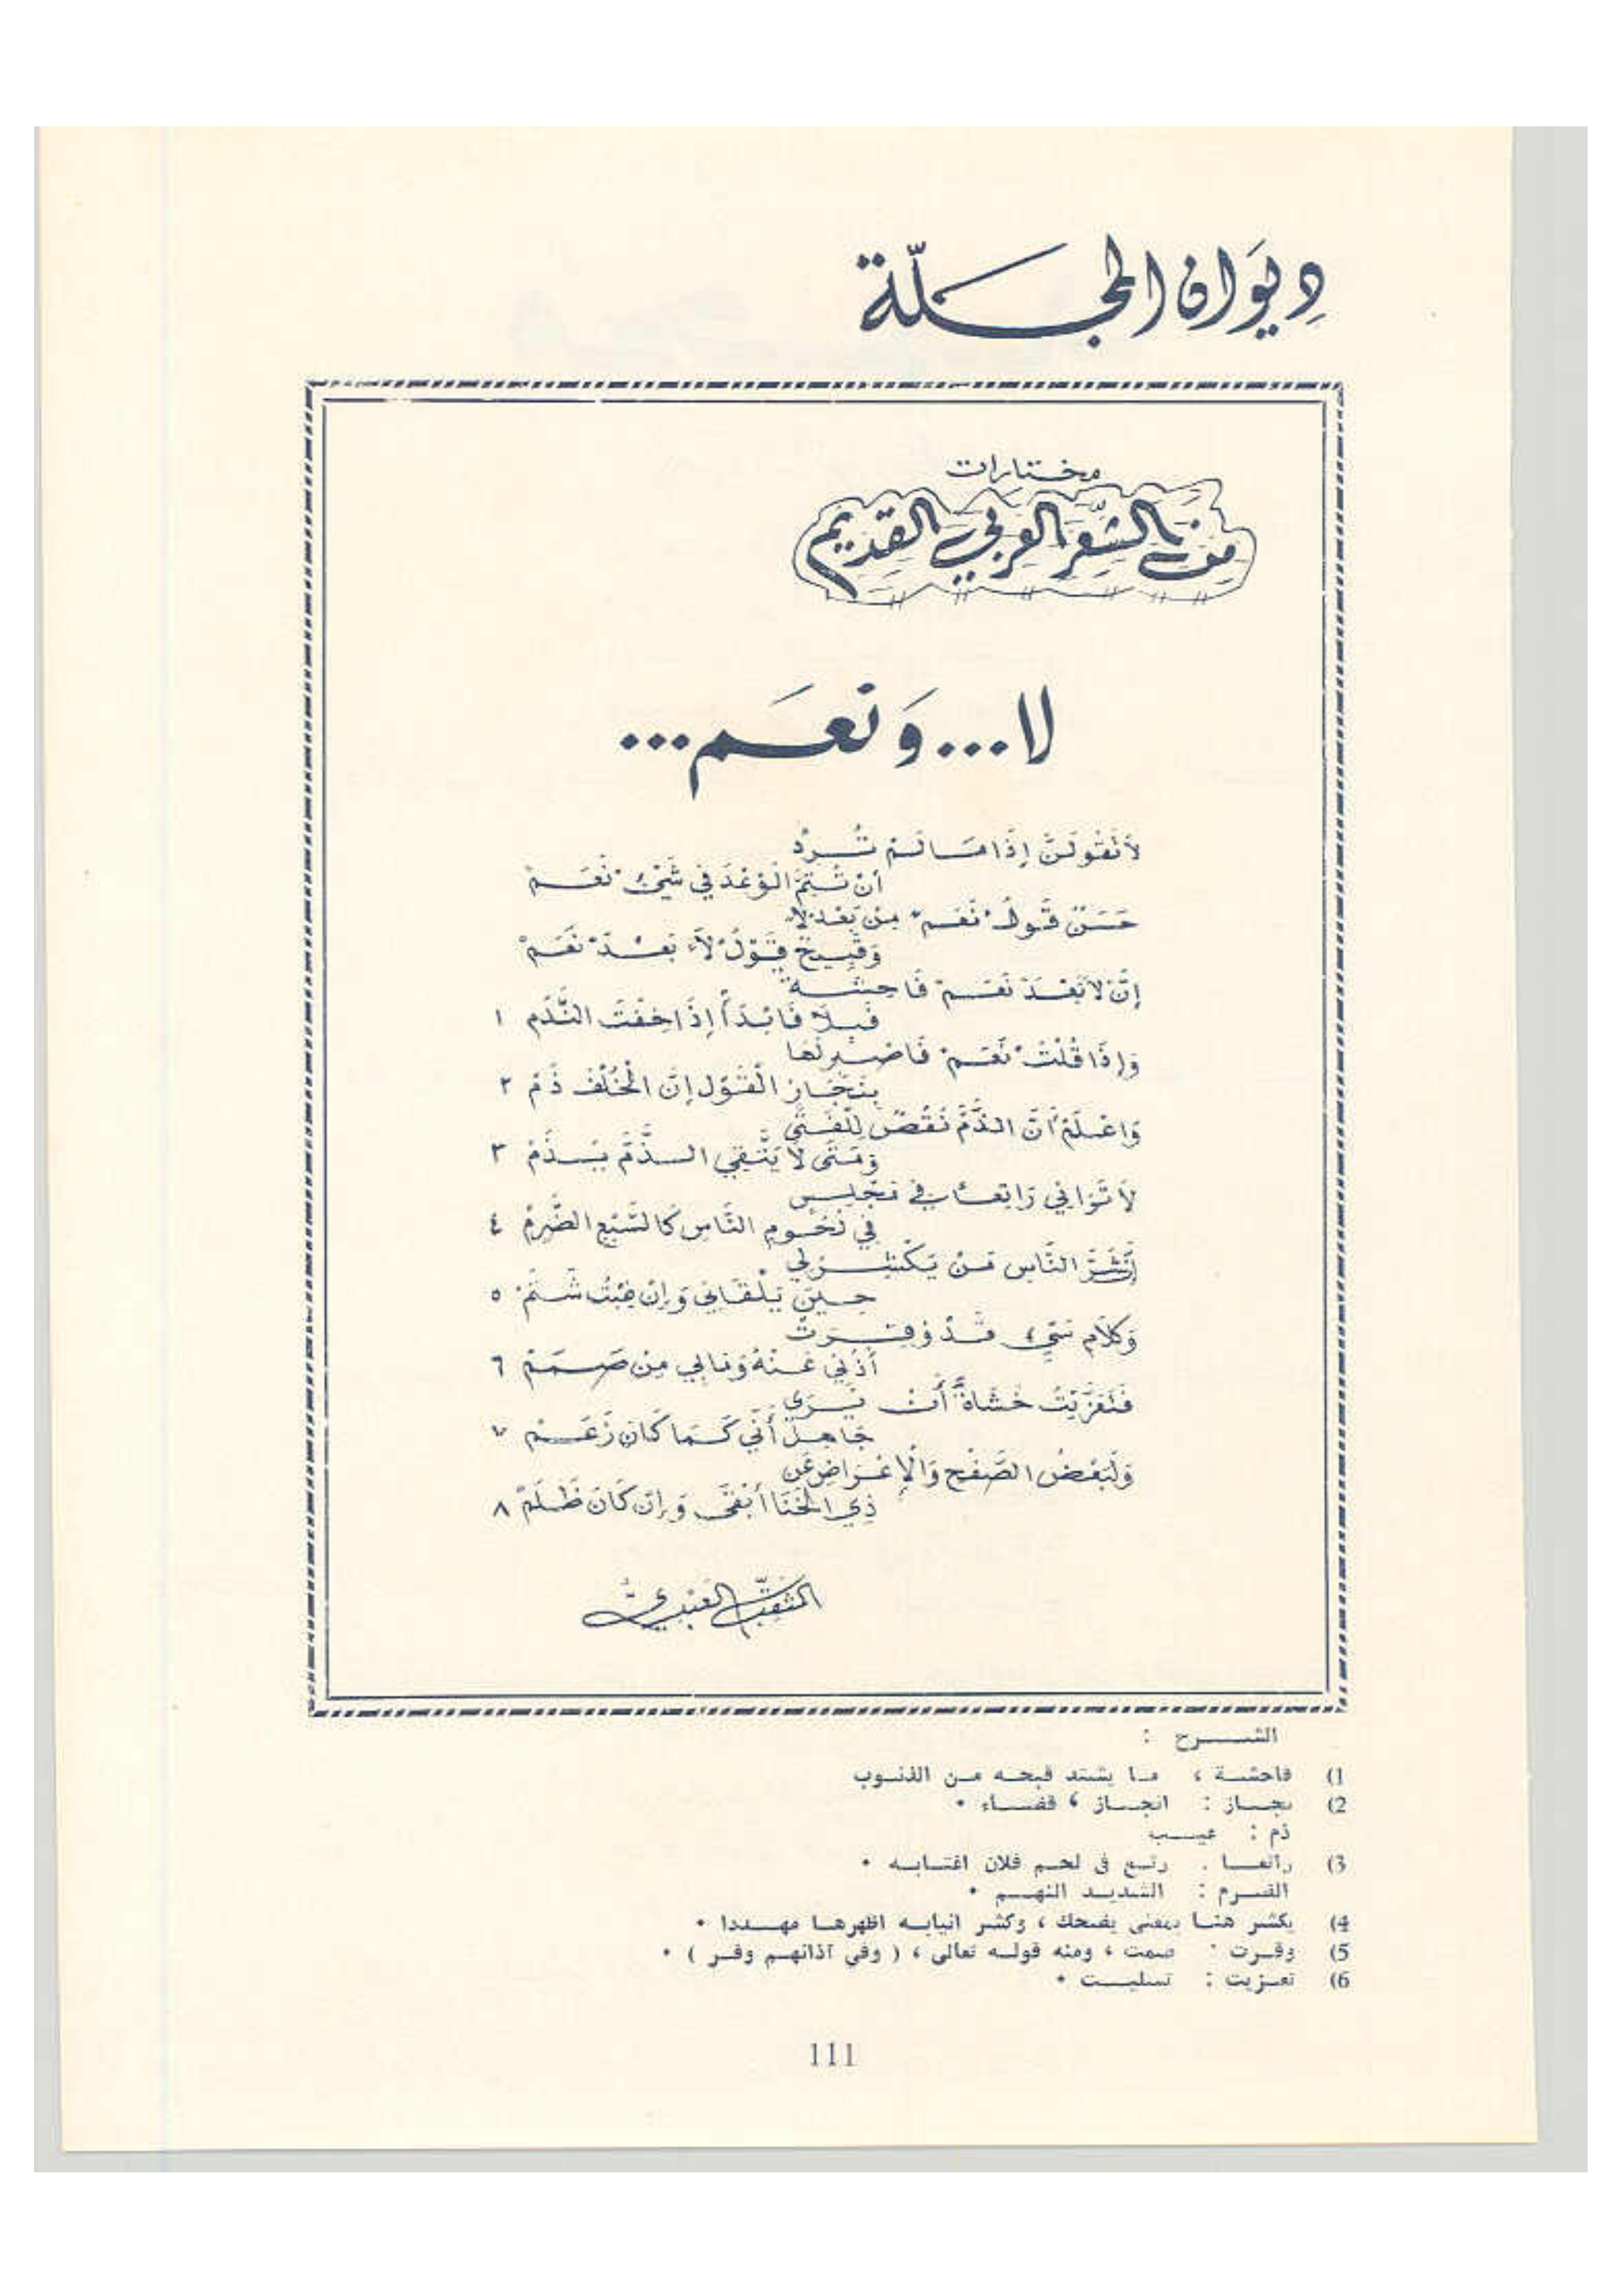 دِيوَان المجَلّة
مختارات
من الشّعر العربي القديم
لا... وَنعَم...
لاَ تَقُولَنَّ إِذَا مَا لَمْ تُرِدْ
أَنْ تُتِمَّ الْوَعْدَ فِي شَيْءٍ "نَعَمْ"
حَسَنٌ قَوْلُ "نَعَم" مِنْ بَعْدِ لا
وَقَبِيحٌ قَوْلُ "لاَ" بَعْدَ "نَعَمْ"
إِنَّ لاَ بَعْدَ نَعَمْ فَاحِشَةٌ
فَبِلاَ فَابْدَأْ إِذَا خِفْتَ النَّدَمْ ١
وَإِذَا قُلْتَ "نَعَم" فَاصْبِرْ لَهَا
بِنَجَازِ الْقَوْلِ إِنَّ الْخُلْفَ ذَمْ ٢
وَاعْلَمْ أَنَّ الذَّمَّ نَقْصٌ لِلْفَتَى
وَمَتَى لاَ يَتَّقِي الذَّمَّ يُذَمْ ٣
لاَ تَرَانِي رَاتِعًا فِي مَجْلِسٍ
فِي لُحُومِ النَّاسِ كَالسَّبْعِ الضَّرِمْ ٤
إِنَّ شَرَّ النَّاسِ مَنْ يَكْشِرُ لِي
حِينَ يَلْقَانِي وَإِنْ غِبْتُ شَتَمْ ٥
وَكَلاَمٍ سَيِّءٍ قَدْ وُقِرَتْ
أُذُنِي عَنْهُ وَمَا بِي مِنْ صَمَمْ ٦
فَتَعَزَّيْتُ خَشَاةً أَنْ يَرَى
جَاهِلٌ أَنِّي كَمَا كَانَ زَعَمْ ٧
وَلَبَعْضُ الصَّفْحِ وَالْإِعْرَاضِ عَنْ
ذِي الْخَنَا أَبْقَى وَإِنْ كَانَ ظَلَمْ ٨
المثقِّب العَبْدِيّ
الشرح :
1) فاحشة ، ما يشتد قبحه من الذنوب
2) نجاز : انجاز ، قضاء .
ذم : عيب
3) راتعا . رتع في لحم فلان اغتابه .
الضرم : الشديد النهم .
4) يكشر هنا بمعنى يضحك ، وكشر انيابه اظهرها مهددا .
5) وقرت : صمت ، ومنه قوله تعالى ، ( وفي آذانهم وقر ) .
6) تعزيت : تسليت .
111